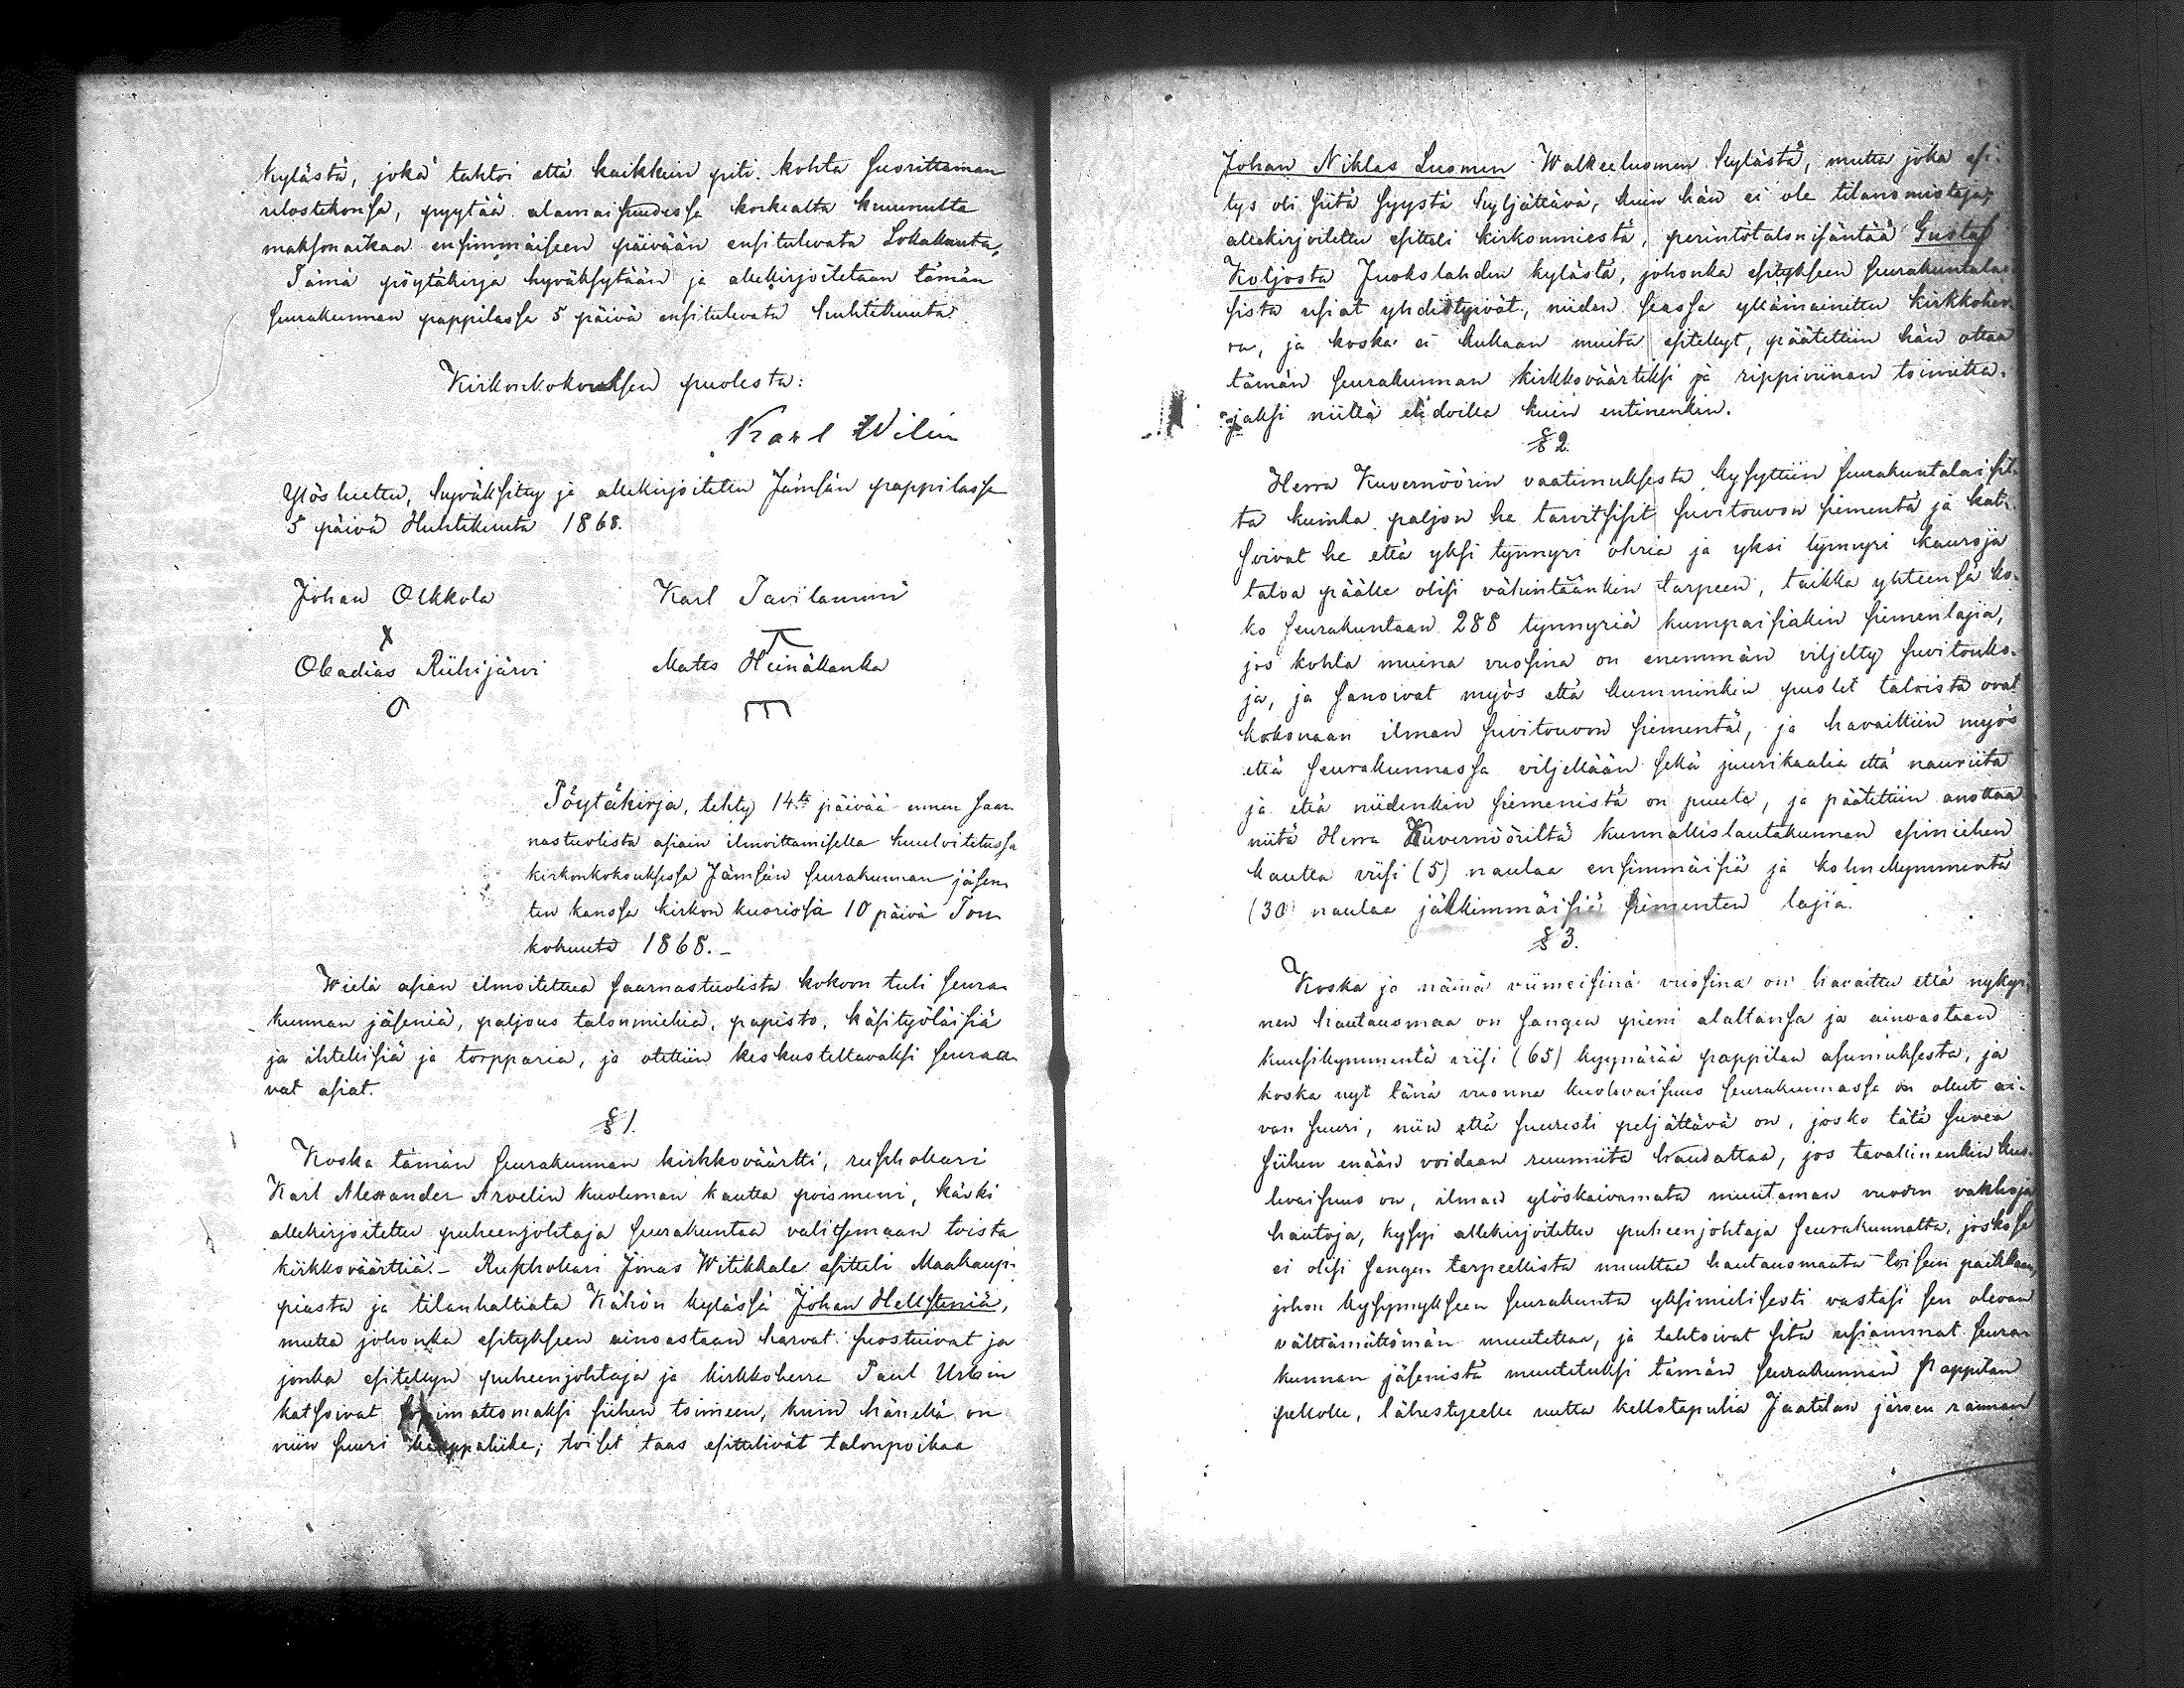 kylästä, joka tahtoi että kaikkein piti kohta suorittaman
ulostekonsa, pyytää alamaisuudessa korkealta kruunulta
maksonaikaa ensimmäiseen päivään ensitulevata Lokakuuta.
Tämä pöytäkirja hyväksytään ja allekirjoitetaan tämän
seurakunnan pappilassa 5 päivä ensitulevata huhtikuuta.
Kirkonkokouksen puolesta:
Karl Wilén
Ylösluettu, hyväksitty ja allekirjoitettu Jämsän pappilassa
5 päivä Huhtikuuta 1868.
Johan Olkkola Karl Tavilammi
Obadias Riihijärvi Matts Heinälanka
Pöytäkirja, tehty 14ta päivää ennen saar-
nastuolista asiain ilmoittamisella kuuloitetussa
kirkonkokouksessa Jämsän seurakunnan jäsen-
ten kanssa kirkon kuorissa 10 päivä Tou-
kokuuta 1868.-
Wielä asian ilmoitettua saarnastuolista kokoon tuli seura-
kunnan jäseniä, paljous talonmiehiä, papisto, käsityöläisiä
ja ihtelisiä ja torpparia, ja otettiin keskusteltavaksi seuraa-
vat asiat.
§ 1.
Koska tämän seurakunnan kirkkoväärtti, rusthollari
Karl Alexander Arvelin kuoleman kautta poismeni, käski
allekirjoitettu puheenjohtaja seurakuntaa valitsemaan toista
kirkkoväärttiä.- Rusthollari Jonas Witikkala esitteli Maakaup-
piasta ja tilanhaltiata Kähön kylässä Johan Hellsteniä,
mutta johonka esitykseen ainoastaan harvat suostuivat ja
jonka esitellyn puheenjohtaja ja kirkkoherra Paul Urbin
katsoivat sopimattomaksi siihen toimeen, kuin hänellä on
niin suuri kauppaliike; toiset taas esittelivät talonpoikaa
Johan Niklas Luomen Walkeeluomen kylästä, mutta joka esi-
tys oli siitä syystä hyljättävä, kuin hän ei ole tilanomistaja;
allekirjoitettu esitteli kirkonmiestä, perintötalonisäntää Gustaf
Koljosta Juokslahden kylästä, johonka esitykseen seurakuntalai-
sista usiat yhdistyivät, niiden seassa yllämainittu kirkkoher-
ra, ja koska ei kukaan muita esitellyt, päätettiin hän ottaa
tämän seurakunnan kirkkoväärtiksi ja rippiviinan toimitta-
jaksi niillä ehdoilla kuin entinenkin.
§ 2.
Herra Kuvernöörin vaatimuksesta kysyttiin seurakuntalaisil-
ta kuinka paljon he tarvitsisit suvitouvon siementä ja kat-
soivat he että yksi tynnyri ohria ja yksi tynnyri kauroja
taloa päälle olisi vähintäänkin tarpeen, taikka yhteensä ko-
ko seurakuntaan 288 tynnyriä kumpaisiakin siemenlajia,
jos kohta muina vuosina on enemmän viljelty suvitouko-
ja, ja sanoivat myös että kumminkin puolet taloista ovat
kokonaan ilman suvitouvon siementä, ja havaittiin myös
että seurakunnassa viljellään sekä juurikaalia että nauriita
ja että niidenkin siemenistä on puute, ja päätettiin anottaa
niitä Herra Kuvernööriltä kunnallislautakunnan esimiehen
kautta viisi (5) naulaa ensimmäisiä ja kolmekymmentä
(30) naulaa jälkimmäisiä siementen lajia.
§ 3.
Koska jo näinä viimeisinä vuosina on havaittu että nykyi-
nen hautausmaa on sangen pieni alaltansa ja ainoastaan
kuusikymmentä viisi (65) kyynärää pappilan asumuksesta, ja
koska nyt tänä vuonna kuolevaisuus seurakunnassa on ollut ai-
van suuri, niin että suuresti peljättävä on, josko tätä suvea
siihen enään voidaan ruumiita haudattaa, jos tavallinenkin kuo-
levaisuus on, ilman ylöskaivamata muutaman vuoden vanhoja
hautoja, kysyi allekirjoitettu puheenjohtaja seurakunnalta, josko se
ei olisi sangen tarpeellista muuttaa hautausmaata toiseen paikkaan,
johon kysymykseen seurakunta yksimielisesti vastasi sen olevan
välttämättömän muutettaa, ja tahtoivat sitä usiammat seura-
kunnan jäsenistä muutetuksi tämän seurakunnan Pappilan
pellolle, lähestyselle uutta kellotapulia Jaatilan järven rannan